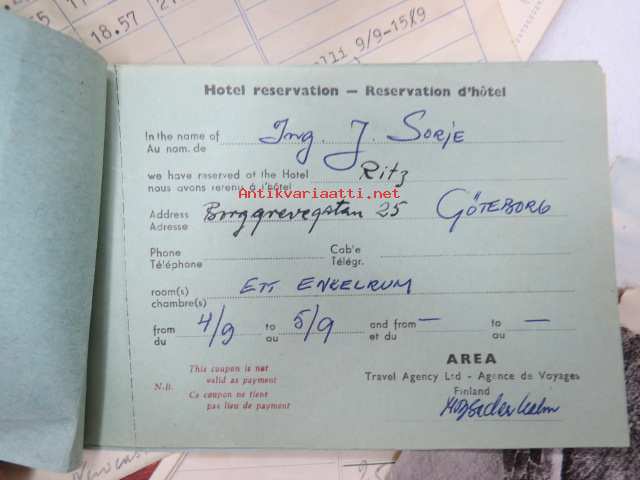 18.57
9/9-15/9
Hotel reservation — Reservation d'hôtel
In the name of Ing. J. Sorje
Au nom. de
we have reserved at the Hotel Ritz
nous avons retenu à l'hôtel
Antikvariaatti.net
Address Borggrevegatan 25 GÖTEBORG
Adresse
Phone Cable
Téléphone Télégr.
room(s) ETT ENKELRUM
chambre(s)
from 4/9 to 5/9 and from — to —
du au et du au
This coupon is not
valid as payment
N.B.
Ce coupon ne tient
pas lieu de payment
AREA
Travel Agency Ltd - Agence de Voyages
Finland